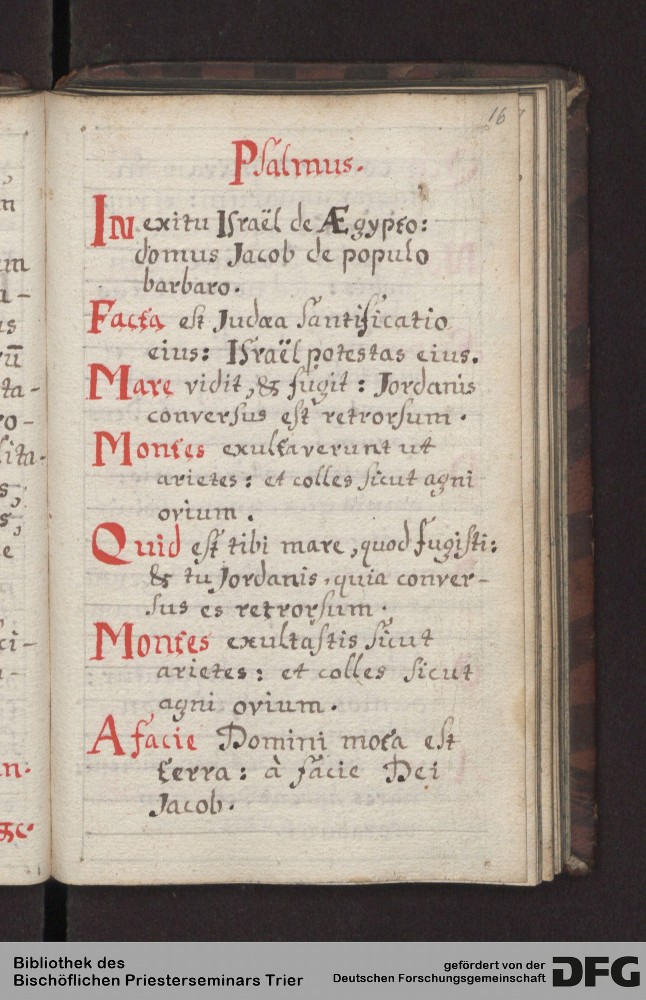 16
Psalmus.
IN exitu Israël de Ægypto:
domus Jacob de populo
barbaro.
Facta est Judæa santificatio
eius: Israël potestas eius.
Mare vidit, & fugit: Jordanis
conversus est retrorsum.
Montes exultaverunt ut
arietes: et colles sicut agni
ovium.
Quid est tibi mare, quod fugisti:
& tu Jordanis, quia conver-
sus es retrorsum.
Montes exultastis sicut
arietes: et colles sicut
agni ovium.
A facie Domini mota est
terra: à facie Dei
Jacob.
Bibliothek des
Bischöflichen Priesterseminars Trier
gefördert von der
Deutschen Forschungsgemeinschaft
DFG